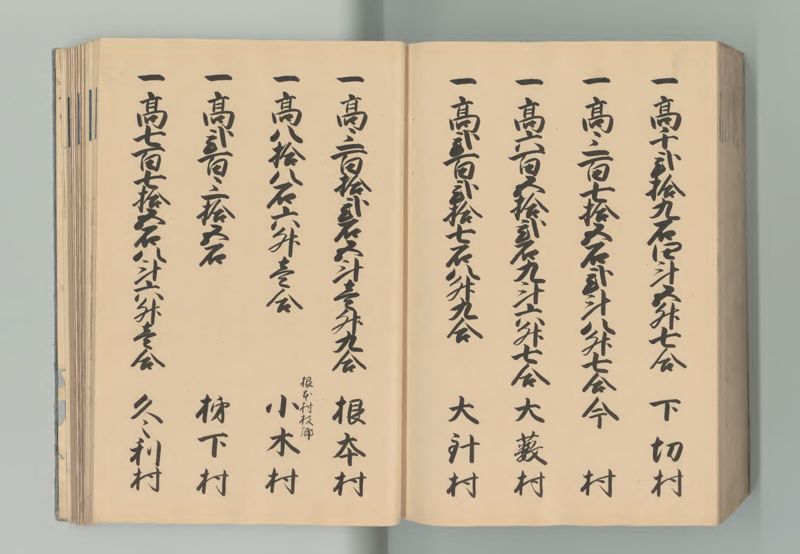 一高千弐拾九石四斗五升七合 下切村
一高三百七拾五石弐斗八升七合 今村
一高六百五拾弐石九斗六升七合 大藪村
一高弐百弐拾七石八升九合 大針村
一高三百拾弐石五斗壱升九合 根本村
根本村枝郷
一高八拾八石六升壱合 小木村
一高弐百三拾五石 柿下村
一高七百七拾五石八斗六升壱合 久々利村